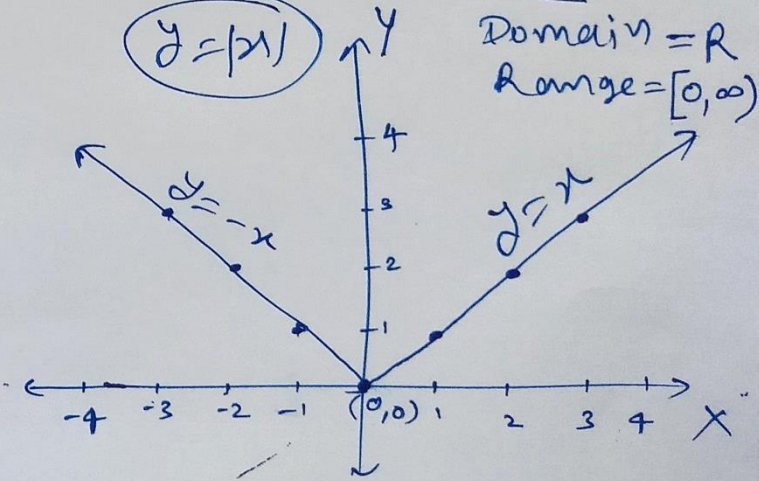 y = |x|
Y
Domain = R
Range = [0, ∞)
4
y = -x
3
y = x
2
1
-4 -3 -2 -1 (0,0) 1 2 3 4 X